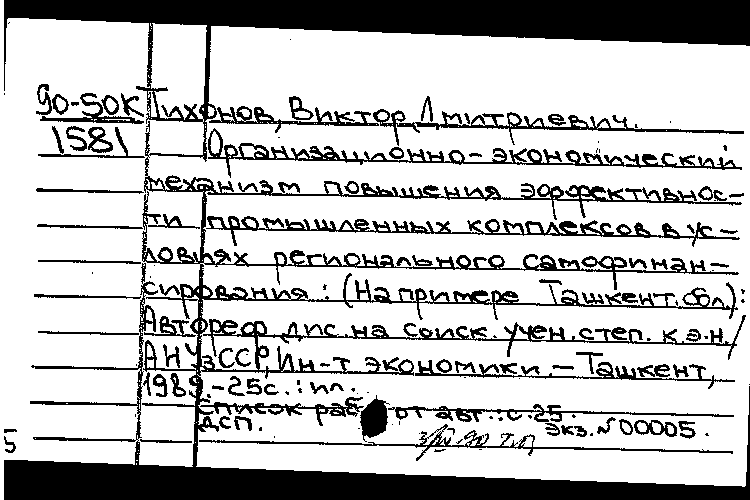 90-50К Тихонов, Виктор Дмитриевич.
1581 Организационно-экономический
механизм повышения эффективнос-
ти промышленных комплексов в ус-
ловиях регионального самофинан-
сирования: (На примере Ташкент. обл.):
Автореф. дис. на соиск. учен. степ. к.э.н./
АН УзССР, Ин-т экономики. – Ташкент,
1989. – 25с. : ил.
Список раб от авт.: с.25.
ДСП. экз. № 00005.
5